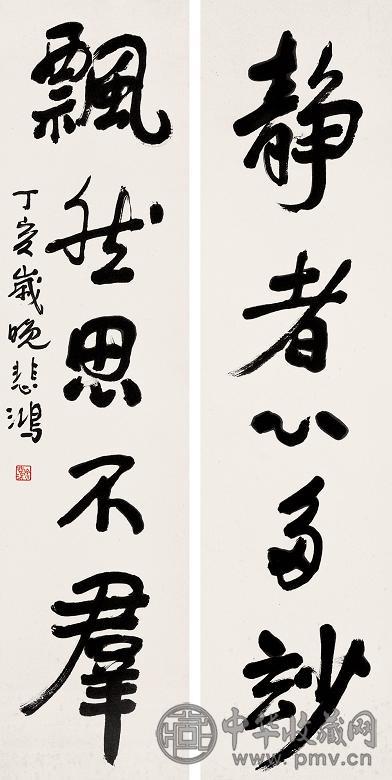 静者心多玅
飄然思不羣
丁亥歲晚悲鴻
中华收藏网
www.pmv.cn